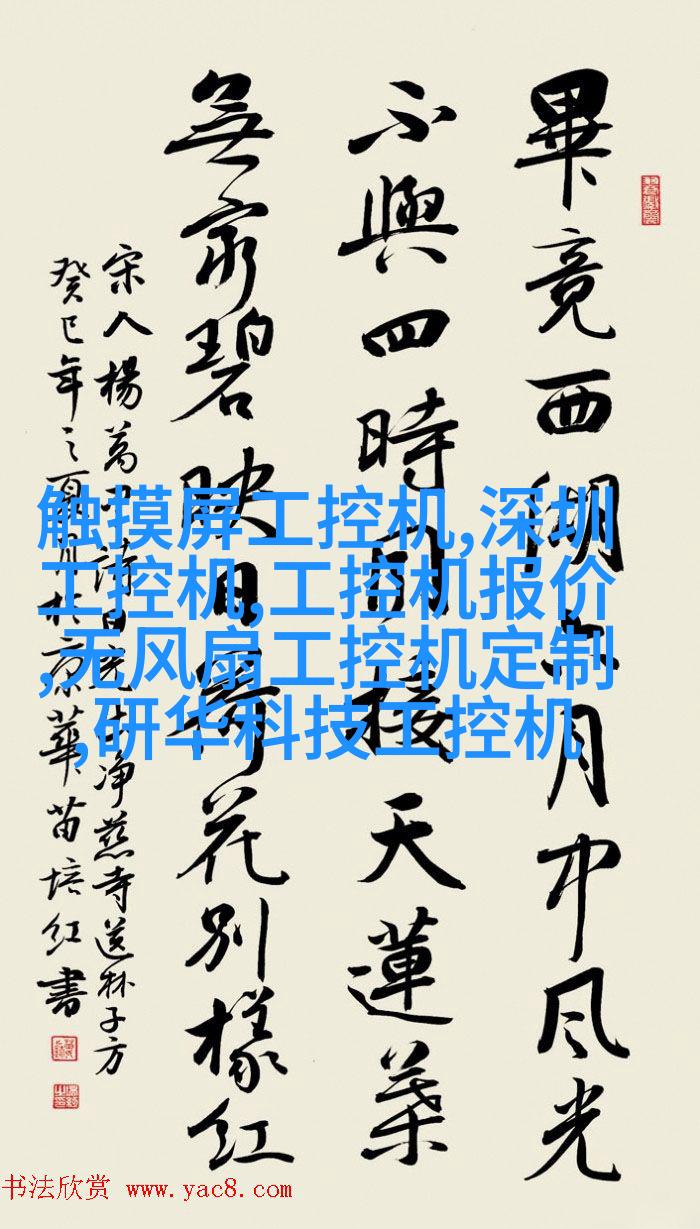 畢竟西湖六月中风光
不與四時同接天蓮葉
無窮碧映日荷花別樣红
宋人楊萬里詩曉出净慈寺送林子方
癸巳年之夏月於京華苗培红書
触摸屏工控机,深圳
工控机,工控机报价
,无风扇工控机定制
,研华科技工控机
书法欣赏 www.yac8.com